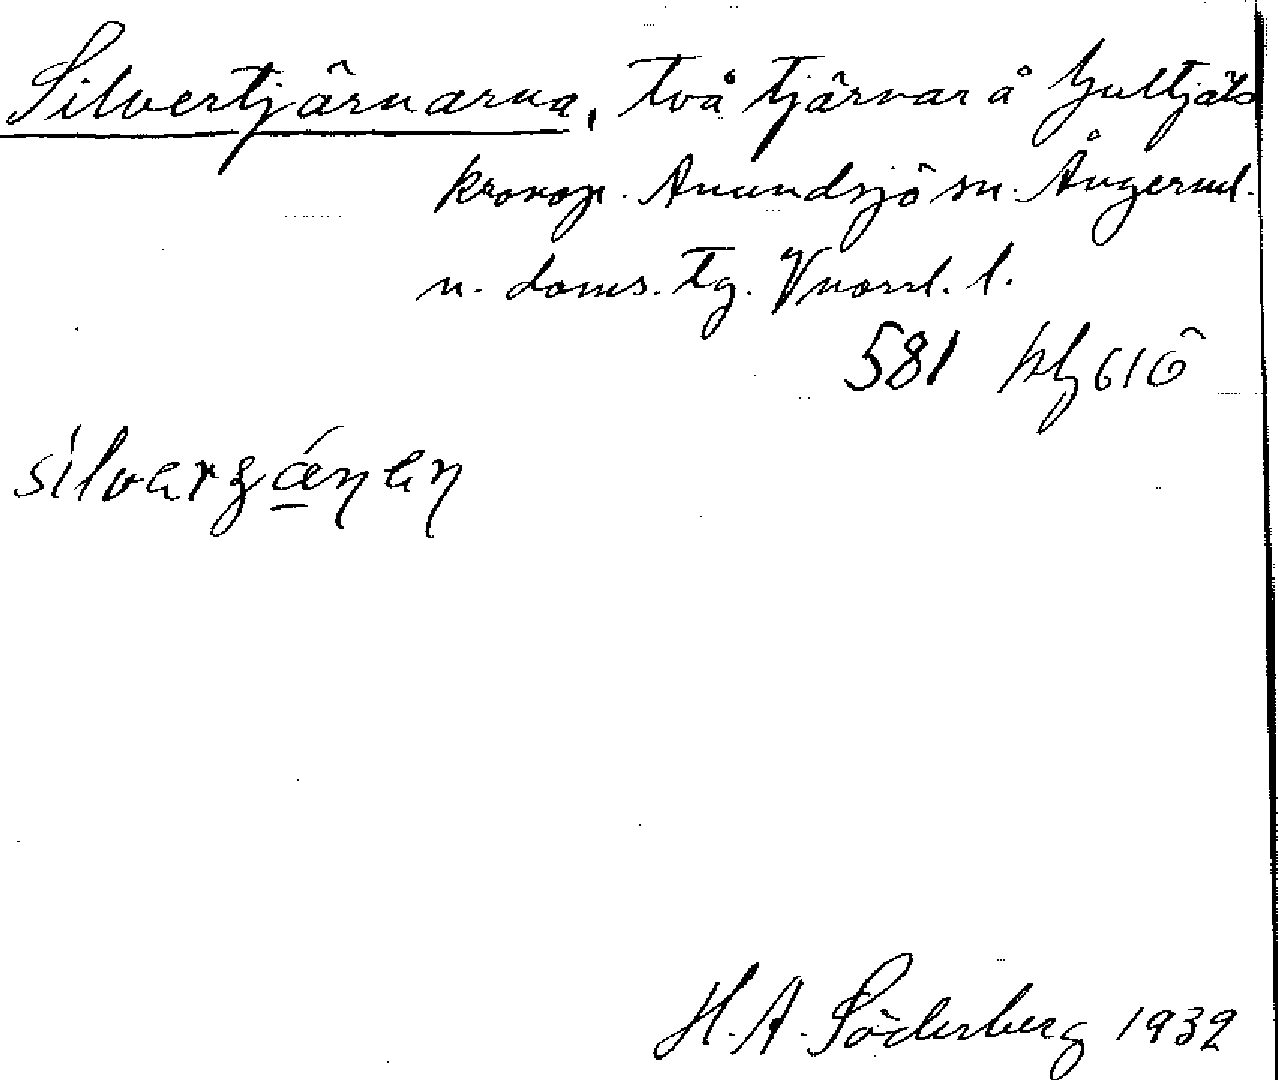 Silvertjärnarna, två tjärnar å Gultjäls
kronop. Anundsjö sn. Ångerml.
n. doms. tg. Vnorrl. l.
581
silvarʒáŋeŋ
H. A. Söderberg 1932